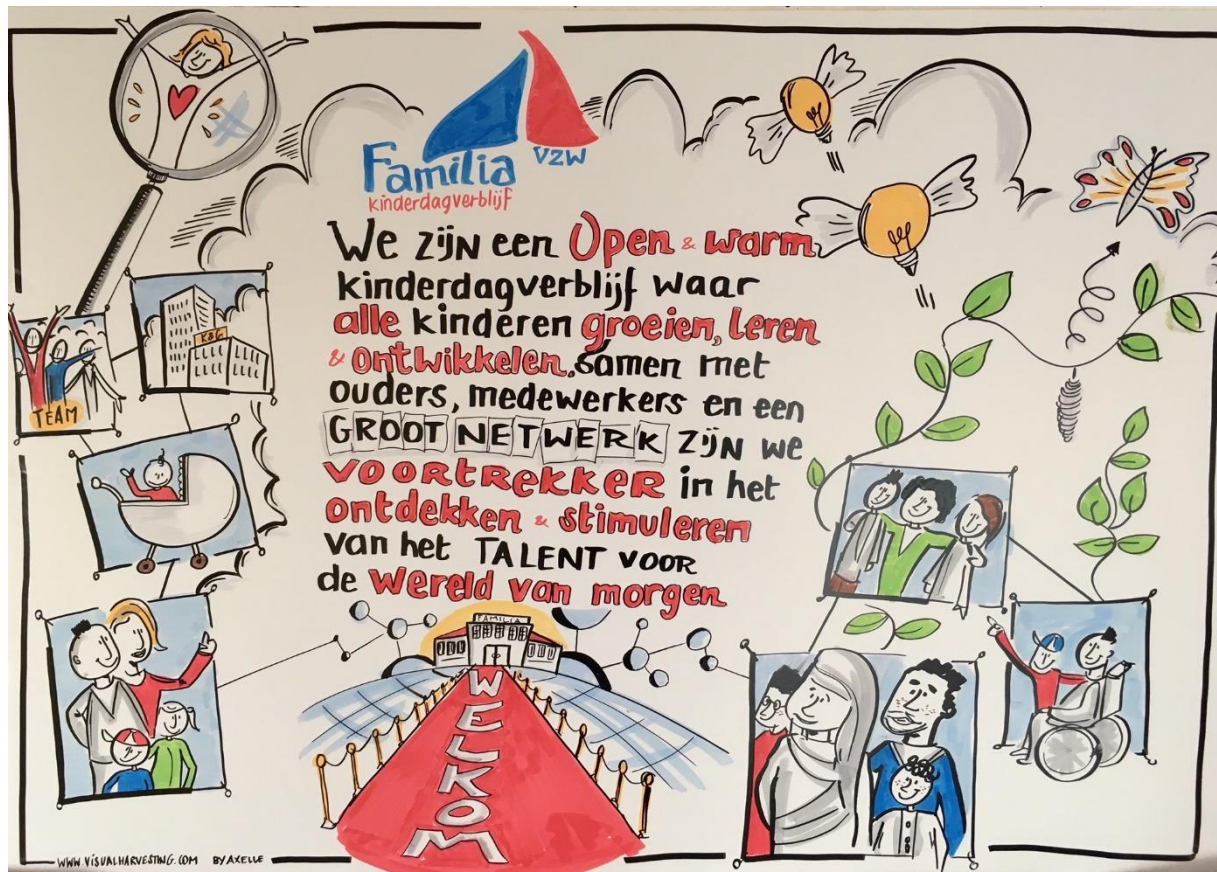 Familia
VZW
kinderdagverblijf
We zijn een Open & warm
kinderdagverblijf waar
alle kinderen groeien, leren
& ontwikkelen. Samen met
ouders, medewerkers en een
GROOT NETWERK zijn we
VOORTREKKER in het
ontdekken & stimuleren
van het TALENT VOOR
de wereld van morgen
K&G
TEAM
FAMILIA
WELKOM
WWW.VISUALHARVESTING.COM BY AXELLE